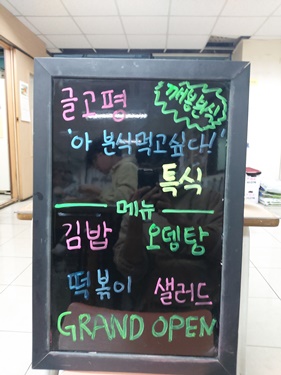 글고평
깨봉분식
'아 분식먹고싶다!'
특식
메뉴
김밥 오뎅탕
떡볶이 샐러드
GRAND OPEN